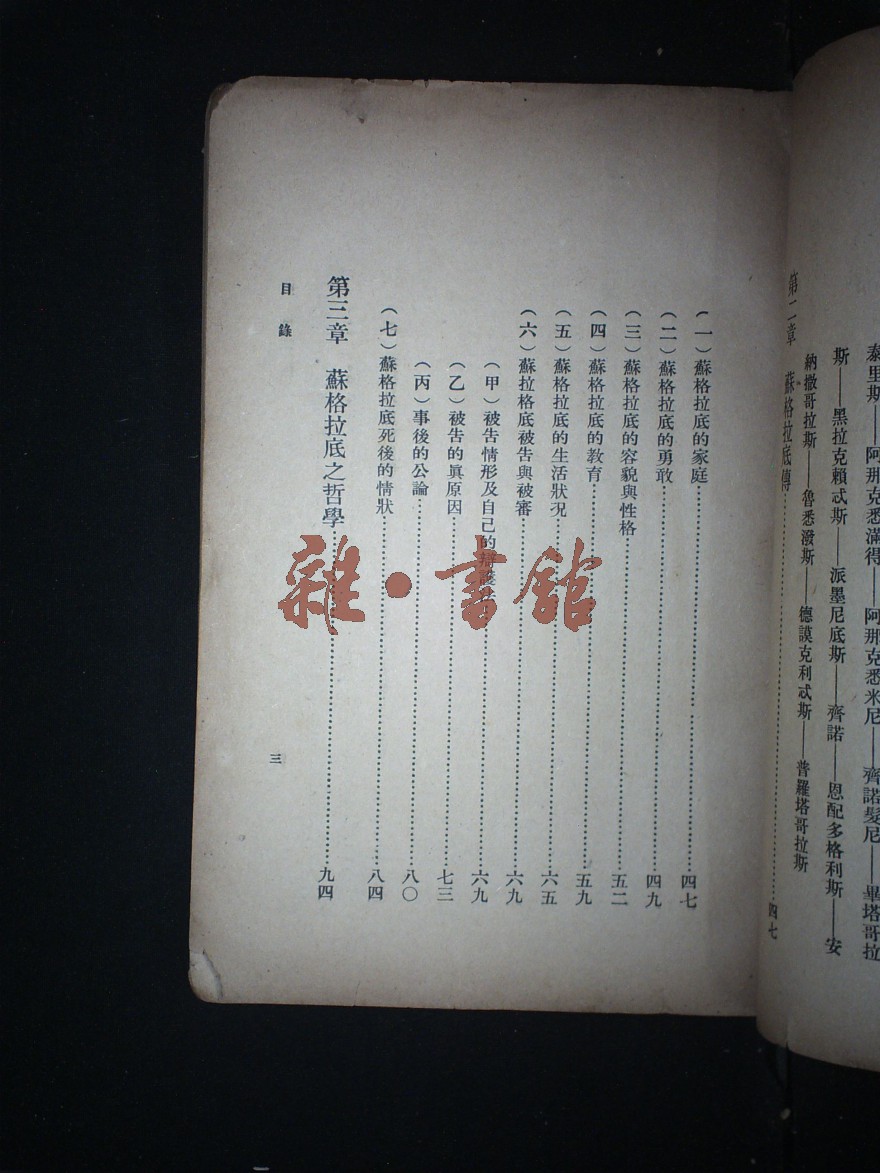 泰里斯——阿那克悉滿得——阿那克悉米尼——齊諾髮尼——畢塔哥拉
斯——黑拉克賴忒斯——派墨尼底斯——齊諾——恩配多格利斯——安
納撒哥拉斯——魯悉潑斯——德謨克利忒斯——普羅塔哥拉斯
第二章 蘇格拉底傳……四七
(一)蘇格拉底的家庭……四七
(二)蘇格拉底的勇敢……四九
(三)蘇格拉底的容貌與性格……五二
(四)蘇格拉底的教育……五九
(五)蘇格拉底的生活狀况……六五
(六)蘇拉格底被告與被審……六九
(甲)被告情形及自己的辯護……六九
(乙)被告的眞原因……七三
(丙)事後的公論……八〇
(七)蘇格拉底死後的情狀……八四
第三章 蘇格拉底之哲學……九四
目錄
三
雜·書舘